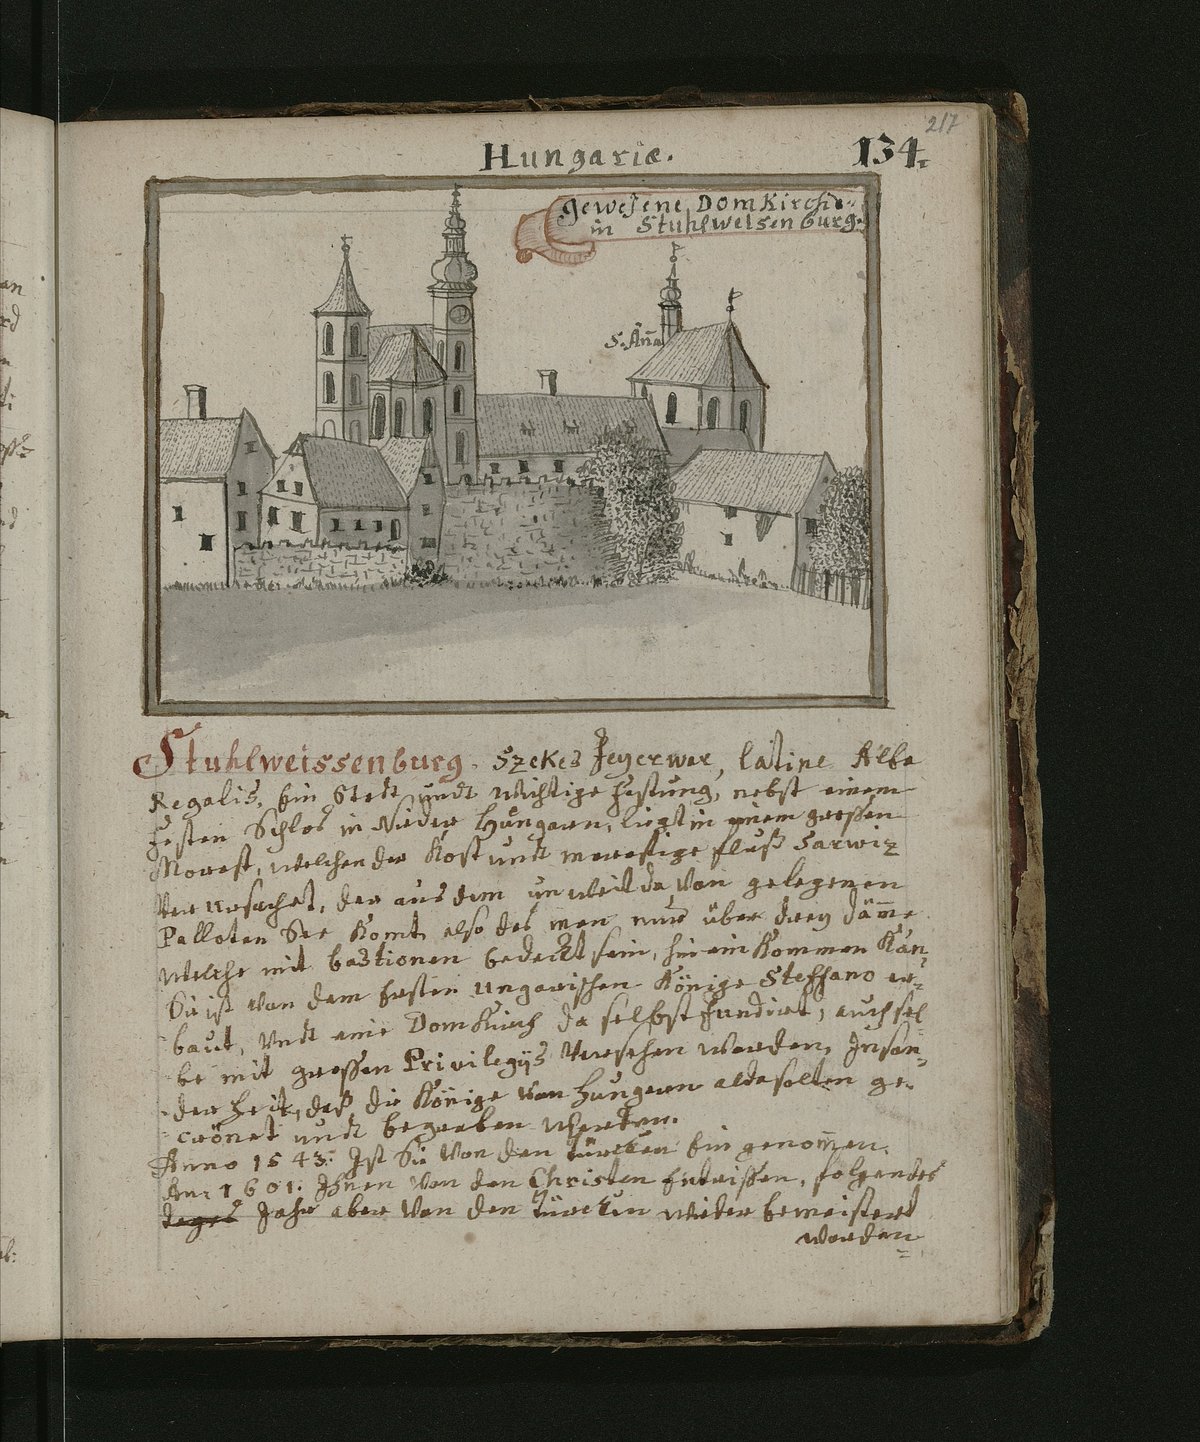 217
Hungariæ.
134.
gewesene DomKirche
in Stuhlweisenburg.
S. Añ
Stuhlweissenburg. Szekes Feyerwar, latine Alba
Regalis, Ein Stadt undt wichtige Festung, nebst einem
Festen Schlos in Nieder Hungarn, liegt in einem grossen
Morast, welchen der Kost undt morastige fluß Sarwiz
Verursachet, der aus dem unweit da Von gelegenen
Palloten See Komt also das man nur über drey däm̃e
welche mit bastionen bedeckt sein, hinein Kommen Kan,
Sie ist Von dem Ersten Ungarischen Könige Steffano er-
baut, Undt eine DomKirch da selbst fundirt, auch sel-
be mit grossen Privilegijs Versehen worden, Inson-
derheit, daß die Könige Von Hungarn alda solten ge-
crönet undt begraben werden.
Anno 1543. Ist Sie Von den türcken Ein genom̃en.
An: 1601. Ihnen Von den Christen Entrissen, folgendes
Jahr aber Von den türcken wieder bemeistert
worden